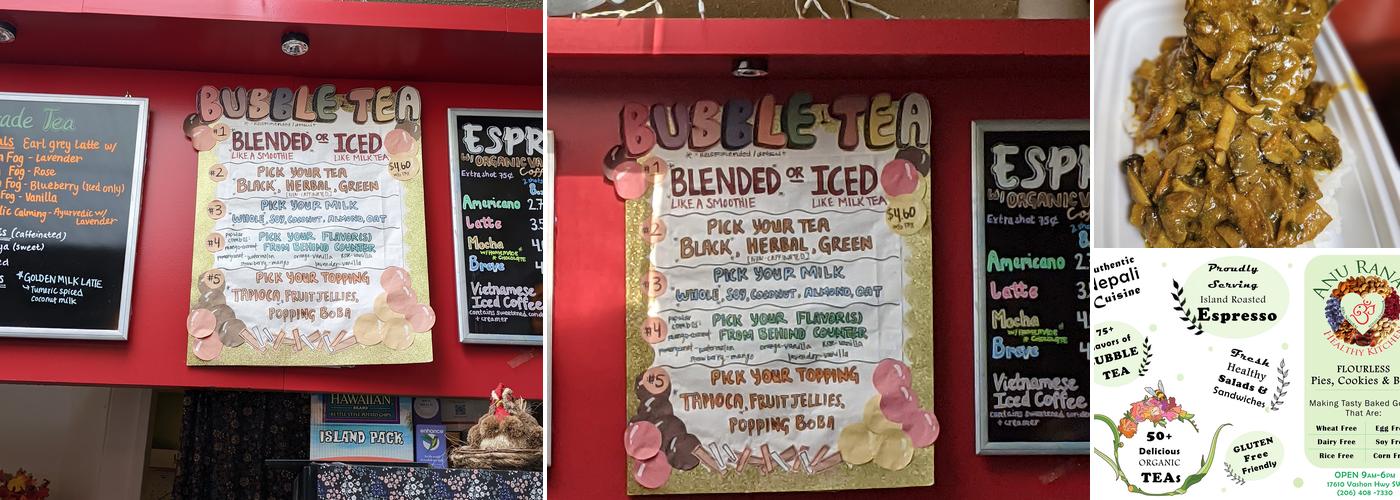 ade Tea
als Earl grey Latte w/
Fog - Lavender
Fog - Rose
Fog - Blueberry (Iced only)
Fog - Vanilla
ic Calming - Ayurvedic w/
Lavender
(caffeinated)
(sweet)
*GOLDEN MILK LATTE
Turmeric spiced
coconut milk
BUBBLE TEA
#1 BLENDED OR ICED
LIKE A SMOOTHIE LIKE MILK TEA
$4.60
#2 PICK YOUR TEA
BLACK, HERBAL, GREEN
#3 PICK YOUR MILK
WHOLE, SOY, COCONUT, ALMOND, OAT
#4 popular combos: PICK YOUR FLAVOR(S)
FROM BEHIND COUNTER
#5 PICK YOUR TOPPING
TAPIOCA, FRUIT JELLIES,
POPPING BOBA
ESPR
W/ ORGANIC VA
Extra shot 75¢
Americano 2.7
Latte 3.5
Mocha
Breve
Vietnamese
Iced Coffee
contains sweetened cond
+ creamer
HAWAIIAN
BRAND
KETTLE STYLE POTATO CHIPS
ISLAND PACK
enhance
BUBBLE TEA
* - Recommended / default
#1 BLENDED OR ICED
LIKE A SMOOTHIE LIKE MILK TEA
$4.60
#2 PICK YOUR TEA
BLACK, HERBAL, GREEN
#3 PICK YOUR MILK
WHOLE, SOY, COCONUT, ALMOND, OAT
#4 popular combos: PICK YOUR FLAVOR(S)
FROM BEHIND COUNTER
orange-vanilla
strawberry-mango lavender-vanilla
#5 PICK YOUR TOPPING
TAPIOCA, FRUIT JELLIES,
POPPING BOBA
ESPR
W/ ORGANIC VA
Extra shot 75¢
Americano 2.
Latte 3.
Mocha
W/ HOMEMADE
CHOCOLATE
Breve
Vietnamese
Iced Coffee
contains sweetened conden
+ creamer
uthentic
Nepali
Cuisine
75+
avors of
UBBLE
TEA
Proudly
Serving
Island Roasted
Espresso
Fresh
Healthy
Salads &
Sandwiches
50+
Delicious
ORGANIC
TEAs
GLUTEN
Free
Friendly
ANU RANA
HEALTHY KITCHE
FLOURLESS
Pies, Cookies & B
Making Tasty Baked Go
That Are:
Wheat Free Egg Fre
Dairy Free Soy Fr
Rice Free Corn Fr
OPEN 9AM-6PM
17610 Vashon Hwy SW
(206) 408 -7330